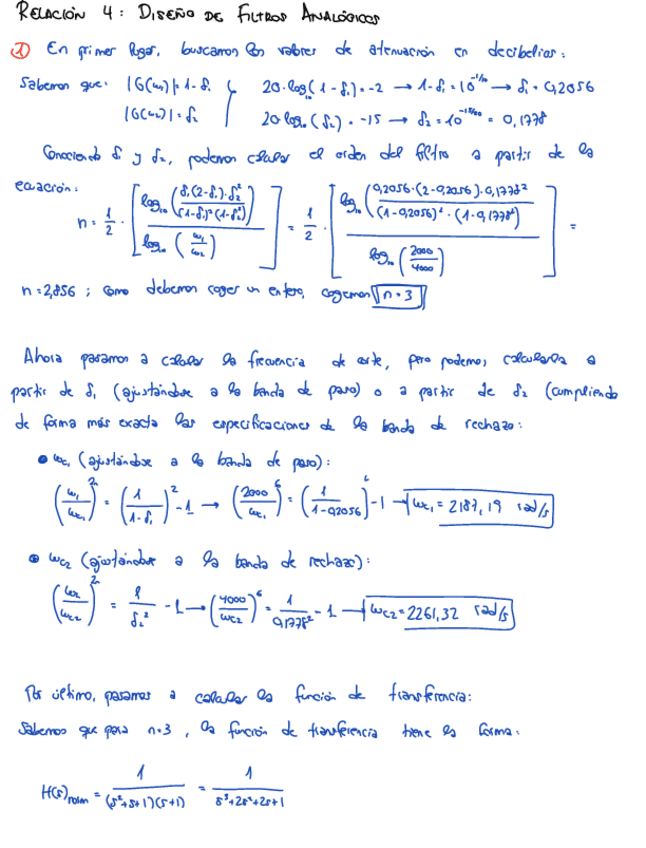 RELACIÓN 4: DISEÑO DE FILTROS ANALÓGICOS
① En primer lugar, buscamos los valores de atenuación en decibelios:
Sabemos que: |G(ω₁)| = 1-δ₁ 20·log₁₀(1-δ₁) = -2 → 1-δ₁ = 10^(-1/10) → δ₁ = 0,2056
|G(ω₂)| = δ₂ 20 log₁₀(δ₂) = -15 → δ₂ = 10^(-15/20) = 0,1778
Conociendo δ₁ y δ₂, podemos calcular el orden del filtro a partir de la
ecuación:
n = 1/2 · [log₁₀(δ₁(2-δ₁)·δ₂²/((1-δ₁)²(1-δ₂²))) / log₁₀(ω₁/ω₂)] = 1/2 · [log₁₀(0,2056·(2-0,2056)·0,1778²/((1-0,2056)²·(1-0,1778²))) / log₁₀(2000/4000)] =
n = 2,856 ; como debemos coger un entero, cogemos n = 3
Ahora pasamos a calcular la frecuencia de corte, pero podemos calcularla a
partir de δ₁ (ajustándose a la banda de paso) o a partir de δ₂ (cumpliendo
de forma más exacta las especificaciones de la banda de rechazo:
• ωc₁ (ajustándose a la banda de paso):
(ω₁/ωc₁)^2n = (1/(1-δ₁))² - 1 → (2000/ωc₁)^6 = (1/(1-0,2056))² - 1 → ωc₁ = 2187,19 rad/s
• ωc2 (ajustándose a la banda de rechazo):
(ω₂/ωc2)^2n = 1/δ₂² - 1 → (4000/ωc2)^6 = 1/0,1778² - 1 → ωc2 = 2261,32 rad/s
Por último, pasamos a calcular la función de transferencia:
Sabemos que para n=3, la función de transferencia tiene la forma:
H(s)norm = 1/((s²+s+1)(s+1)) = 1/(s³+2s²+2s+1)